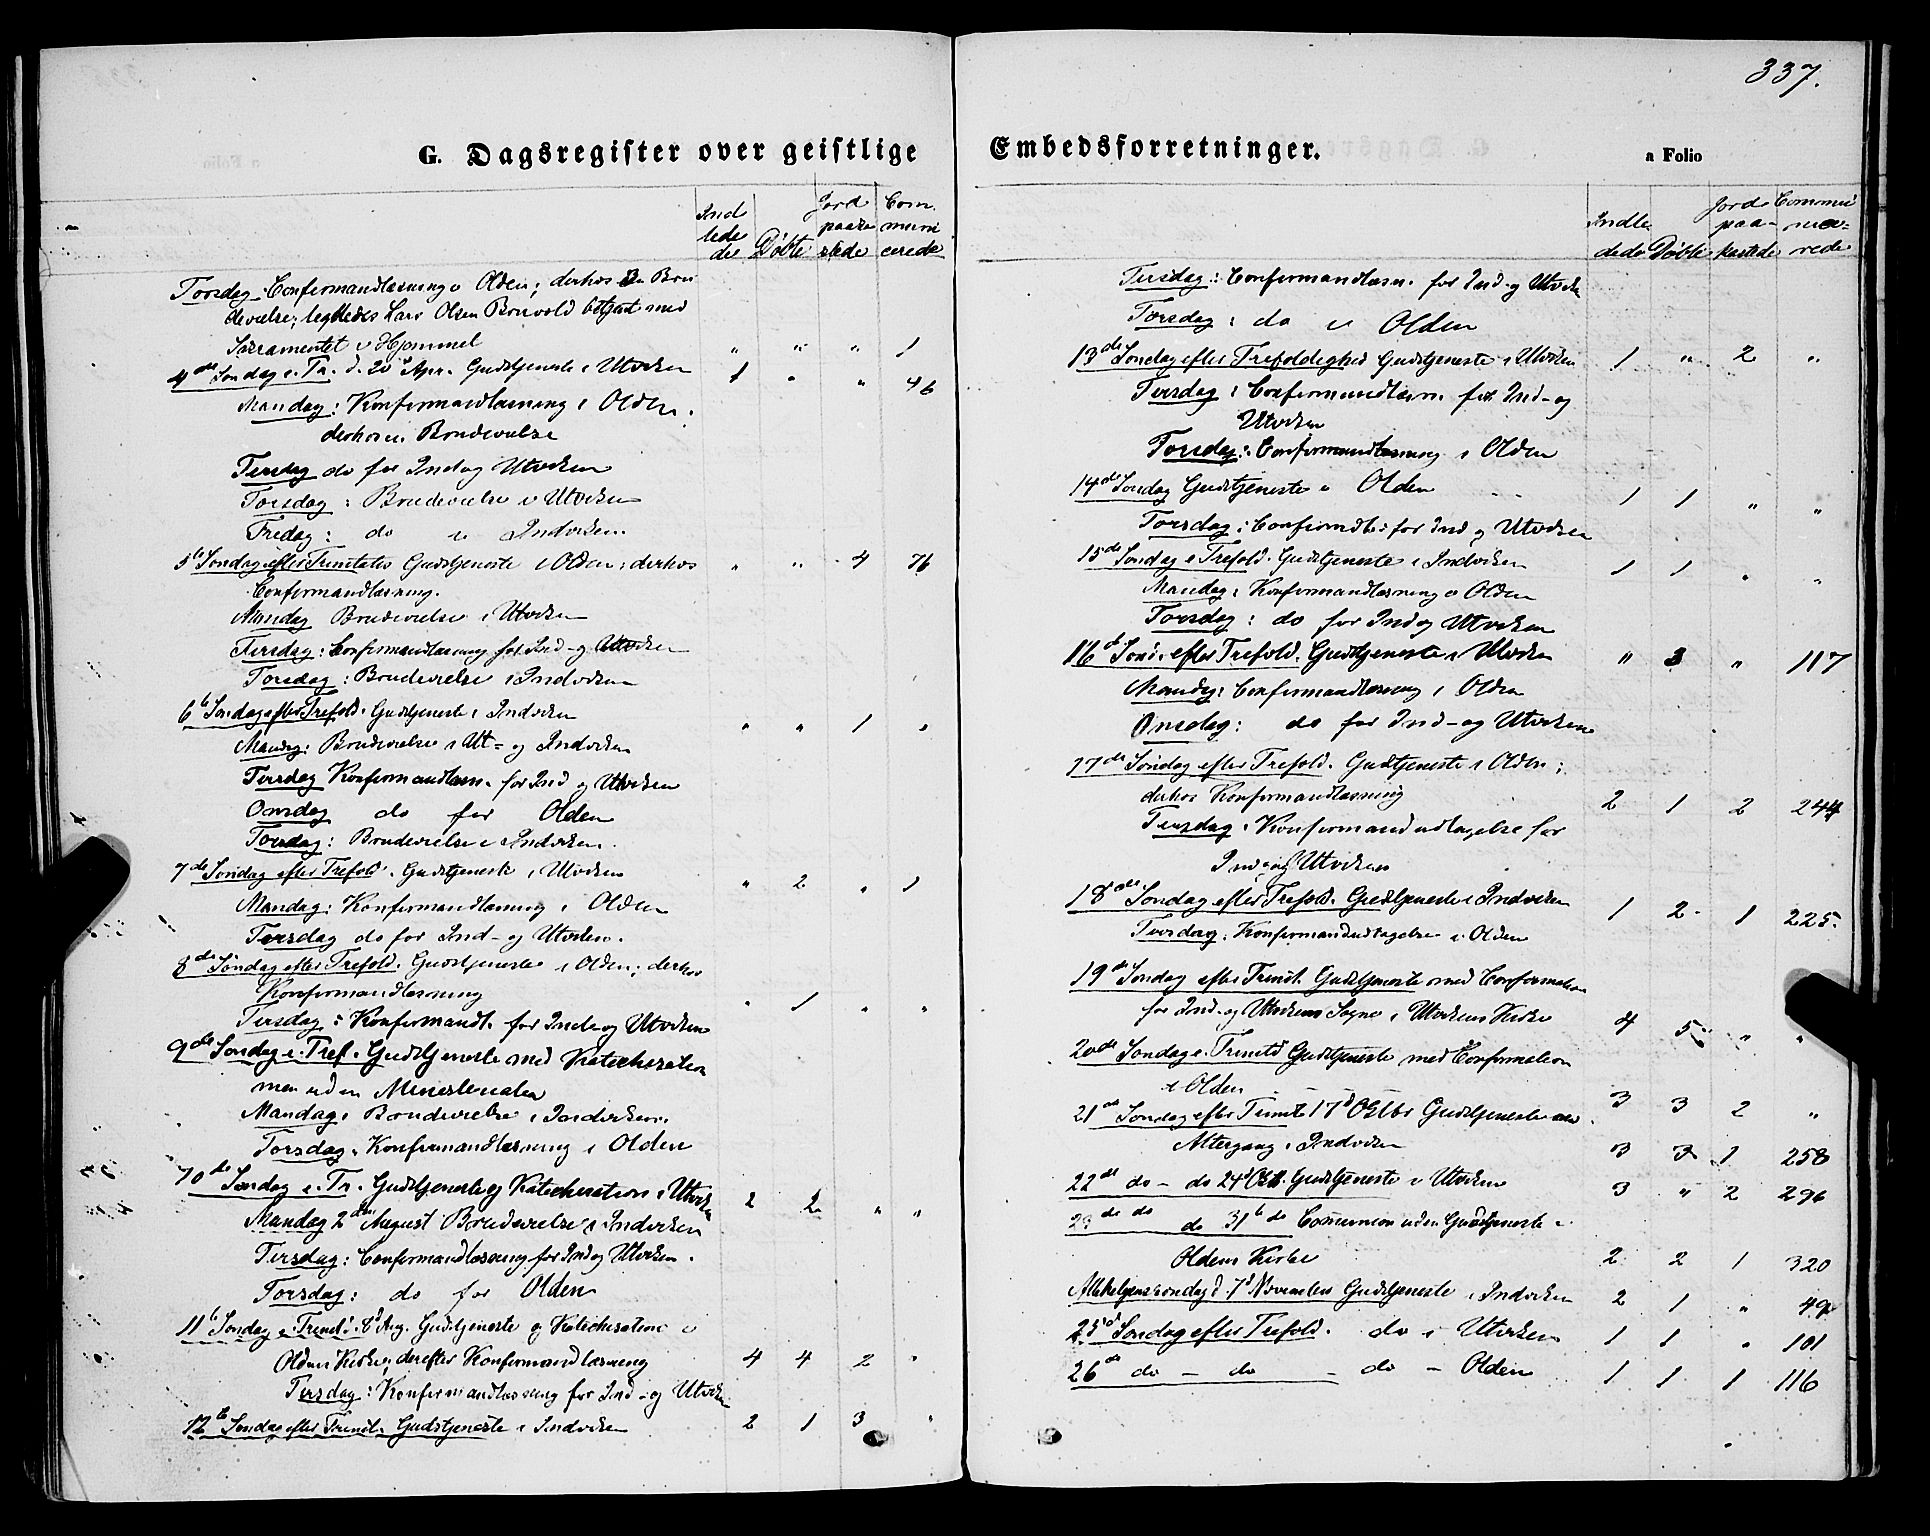 337.
G. Dagsregister over geistlige Embedsforretninger.
a Folio
Ind lede de | Døbte | Jord paaka stede | Com. muni cerede
Torsdag: Confirmandlæsning i Olden; derhos en Bru
devielse; Lars Olsen Bruvold betjent med
Sacramentet i Hjemmet " " " 1
4de Søndag e. Tr. d. 20 Gudstjeneste i Utviken 1 " " 46
Mandag: Konfirmandlæsning i Olden.
derhos en Brudevielse
Tirsdag do for Ind og Utviken
Torsdag: Brudevielse i Utviken
Fredag: do i Indviken
5te Søndag efter Trinitatis Gudstjeneste i Olden; derhos " " 4 76
Confirmandlæsning.
Mandag Brudevielse i Utviken
Tirsdag: Confirmandlæsning for Ind- og Utviken
Torsdag: Brudevielse i Indviken
6te Søndag efter Trefold. Gudstjeneste i Indviken " " 1 "
Mandag: Brudevielse i Ut- og Indviken
Tirsdag Konfirmandlæsn. for Ind og Utviken
Onsdag do for Olden
Torsdag: Brudevielse i Indviken.
7de Søndag efter Trefold. Gudstjeneste i Utviken " 2 " 1
Mandag: Konfirmandlæsning i Olden
Tirsdag do for Ind- og Utviken.
8de Søndag efter Trefold. Gudstjeneste i Olden; derhos
Konfirmandlæsning " 1 " "
Tirsdag: Konfirmandl. for Ind- og Utviken
9de Søndag e. Tref. Gudstjeneste med Katechisation
men uden Ministerialia
Mandag: Brudevielse i Indviken.
Torsdag: Konfirmandlæsning i Olden
10de Søndag e. Tr. Gudstjeneste og Katechisation i Utviken 2 2 " "
Mandag 2den August Brudevielse i Indviken
Tirsdag: Confirmandlæsning for Ind og Utviken.
Torsdag: do for Olden
11te Søndag e. Trinit. 8d Aug. Gudstjeneste og Katechisation i
Olden Kirke; derefter Konfirmandlæsning 4 4 2 "
Tirsdag: Konfirmandlæsning for Ind- og Utviken
12te Søndag efter Trinit. Gudstjeneste i Indviken 2 1 3 "
Indle dede | Døbte | Jords paa- kastede | Communi- rede
Tirsdag: Confirmandlæsn. for Ind- og Utviken
Torsdag: do i Olden
13de Søndag efter Trefoldighed Gudstjeneste i Utviken 1 " 2 "
Tirsdag: Confirmandlæsn. for Ind- og
Utviken
Torsdag: Confirmandlæsning i Olden
14de Søndag Gudstjeneste i Olden 1 1 " "
Torsdag: Confirmdl: for Ind og Utviken
15de Søndag e Trefold. Gudstjeneste i Indviken 1 1 " "
Mandag: Konfirmandlæsning i Olden
Torsdag: do for Ind og Utviken
16de Sønd. efter Trefold. Gudstjeneste i Utviken " 3 " 117
Mandag: Confirmandlæsning i Olden
Onsdag: do for Ind- og Utviken
17de Søndag efter Trefold. Gudstjeneste i Olden;
derhos Konfirmandlæsning 2 1 2 244
Tirsdag: Konfirmandudtagelse for
Ind- og Utviken
18de Søndag efter Trefold. Gudstjeneste i Indviken 1 2 1 225
Tirsdag: Konfirmandudtagelse i Olden
19de Søndag efter Trinit. Gudstjeneste med Confirmation
for Ind- og Utvikens Sogne i Utvikens Kirke 4 5 " "
20de Søndag e. Trinit Gudstjeneste med Confirmation
i Olden 3 3 2 "
21de Søndag efter Trinit 17d Octbr Gudstjeneste
Altergang i Indviken 3 3 1 258
22de do - do 24d Oct. Gudstjeneste i Utviken 3 " 2 296
23de do do 31te do Communion uden Gudstjeneste i
Oldens Kirke 2 2 1 320
Allehelgenssøndag d. 7d November Gudstjeneste i Indviken 2 1 " 49
25d Søndag efter Trefold. do i Utviken 1 1 " 101
26de do - do - do - Olden 1 1 1 116